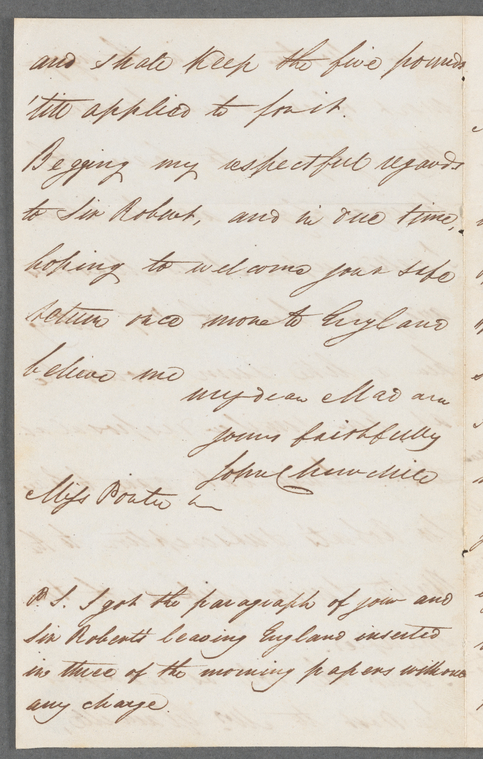 and shall keep the five pounds
'till applied to for it.
Begging my respectful regards
to Sir Robert, and in due time,
hoping to welcome your safe
return once more to England
believe me
my dear Madam
yours faithfully
John Churchill
Miss Porter
P.S. I got the paragraph of your and
Sir Robert's leaving England inserted
in three of the morning papers without
any charge.